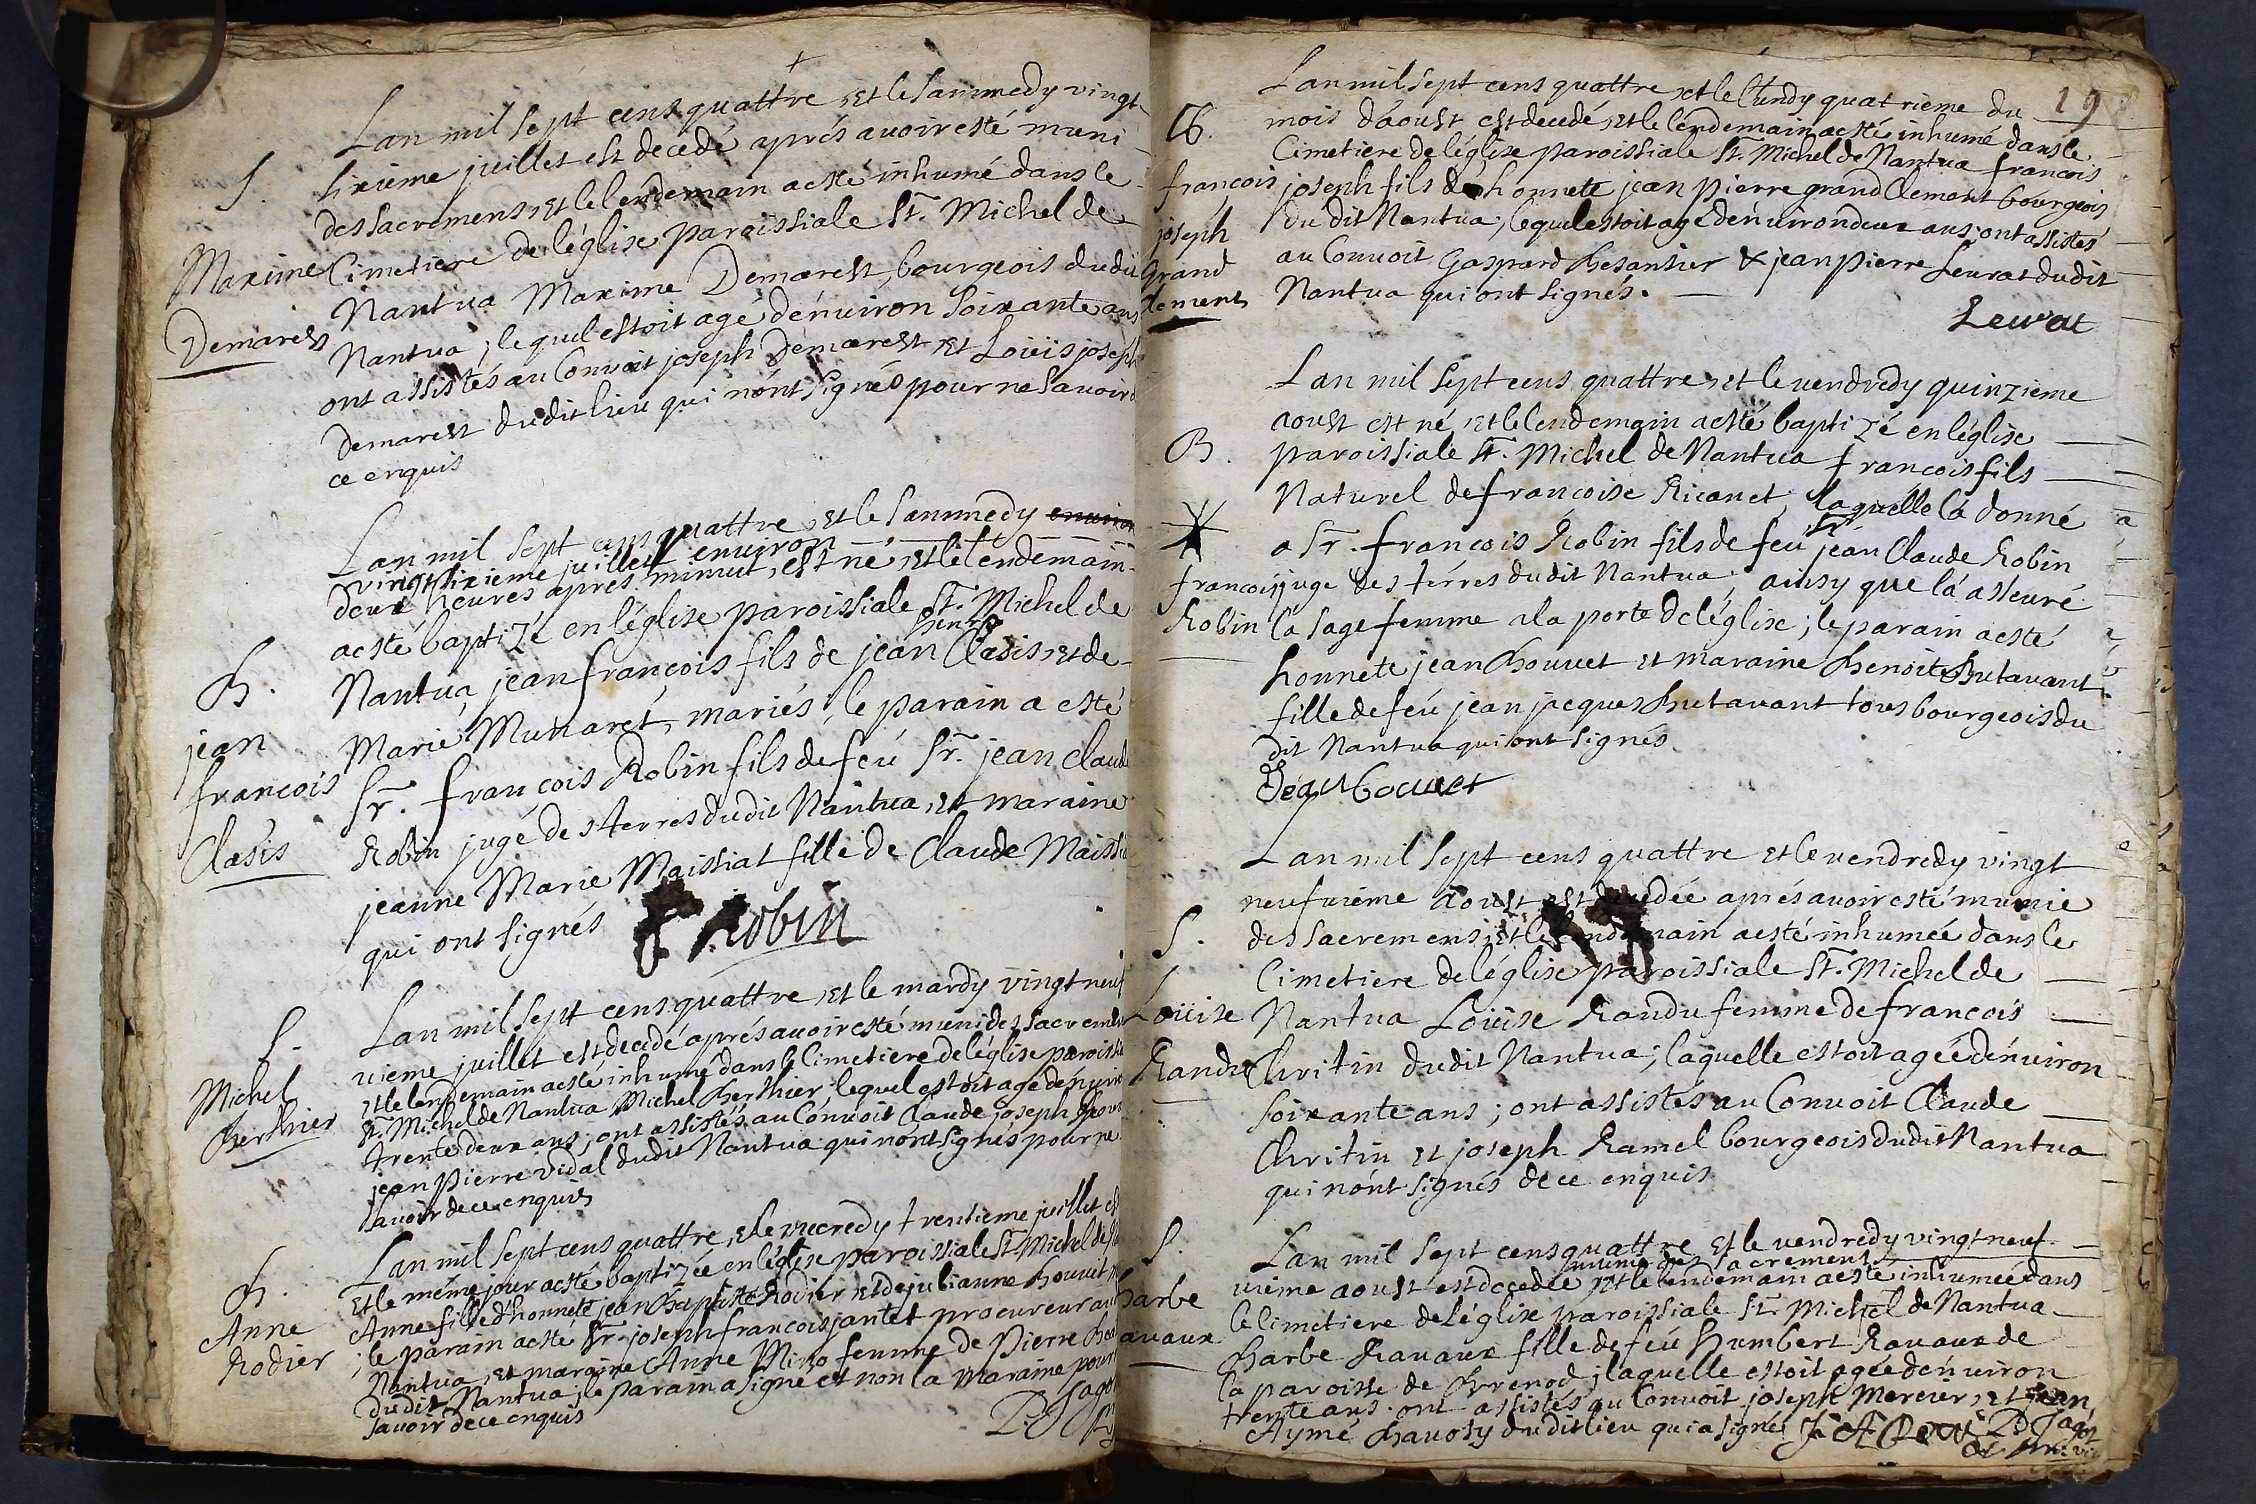 Lan mil sept cens quattre, et le sammedy vingt
S. sixieme juillet est decedé aprés avoir esté muni
des sacremens, et le lendemain a esté inhumé dans le
Maxime Cimetiere de léglise paroissiale St. Michel de
Demarest Nantua Maxime Demarest, bourgeois dudit
Nantua; lequel estoit agé dénviron soixante ans
ont assistés au Convoit joseph Demarest et Loüis joseph
Demarest dudit lieu qui nónt signés pour ne savoir d
ce enquis
Lan mil sept cens quattre, et le sammedy environ
vingtsixieme juillet environ
deux heures apres minuit, est né, et le lendemain
a esté baptizé en léglise paroissiale St. Michel de
B. Nantua jean françois fils de jean Clæsis, et de
jean Marie Munaret, mariés, le parain a esté
françois Sr. françois Robin fils de feú Sr. jean Claude
Clæsis Robin jugé des terres dudit Nantua, et maraine
jeanne Marie Maissiat fille de Claude Maissia
qui ont signés Robin
Lan mil sept cens quattre, et le mardy vingt neuf
S. vieme juillet est decedé aprés avoir esté muni des sacremens
Michel et le lendemain a esté inhumé dans le Cimetiere de léglise paroissia
Berthier St. Michel de Nantua Michel Berthier, lequel estoit agé dénviron
trente deux ans; ont assistés au Convoit Claude joseph
jean Pierre Vidal dudit Nantua qui nónt signés pour ne
savoir de ce enquis
Lan mil sept cens quattre, et le mecredy trentieme juillet est
B. Et le méme jour a esté baptizée en léglise paroissiale St. Michel de
Anne Anne fille d'honneté jean Baptiste Rodier et de julianne Bouvet
Rodier ; le parain a esté Sr. joseph françois jantet procureur au
Nantua, et maraine Anne Miro femme de Pierre
dudit Nantua; le parain a signé et non la maraine pour
savoir de ce enquis

19
Lan mil sept cens quattre et le lundy quatrieme du
mois dáoust est decedé, et le lendemain a esté inhumé dans le
Cimetiere de léglise paroissiale St. Michel de Nantua françois
françois joseph fils de honneté jean Pierre grand Clement bourgeois
joseph du dit Nantua; lequel estoit agé dénviron deux ans; ont assistés
Grand au Convoit Gaspard Besansier & jean Pierre Levrat dudit
clement Nantua qui ont signés.
Levrat
Lan mil sept cens quattre, et le vendredy quinzieme
aoust est né, et le lendemain a esté baptizé en léglise
B. paroissiale St. Michel de Nantua françois fils
Naturel de françoise Ricanet, laquelle lá donné
a Sr. françois Robin fils de feú Sr jéan Claude Robin
françois juge des térres dudit Nantua ainsy que lá asseuré
Robin la sage femme a la porte de léglise; le parain a esté
honneté jean Bouvet et maraine Benoite Butavant
fille de feú jean jacques Butavant tous bourgeois du
dit Nantua qui ont signés
Jean bouvet
Lan mil sept cens quattre et le vendredy vingt
neufvieme aoust est decedée aprés avoir esté munie
S. des sacremens, et le lendemain a esté inhumée dans le
Cimetiere de léglise paroissiale St. Michel de
Loüise Nantua Loüise Randu femme de françois
Randu Chritin dudit Nantua; laquelle estoit agée dénviron
soixante ans; ont assistés au Convoit Claude
Chritin et joseph Ramel bourgeois dudit Nantua
qui nónt signés de ce enquis
S. Lan mil sept cens quattre et le vendredy vingt neuf
munie des sacremens
vieme aoust est decedée et le lendemain a esté inhumée dans
barbe le Cimetiere de léglise paroissiale St. Michel de Nantua
avaux Barbe Ravaux fille de feú Humbert Ravaux de
la paroisse de Brenod; laquelle estoit agée dénviron
trente ans. ont assistés au Convoit joseph Mercier, et jean
Aymé Bavosy dudit lieu qui a signé